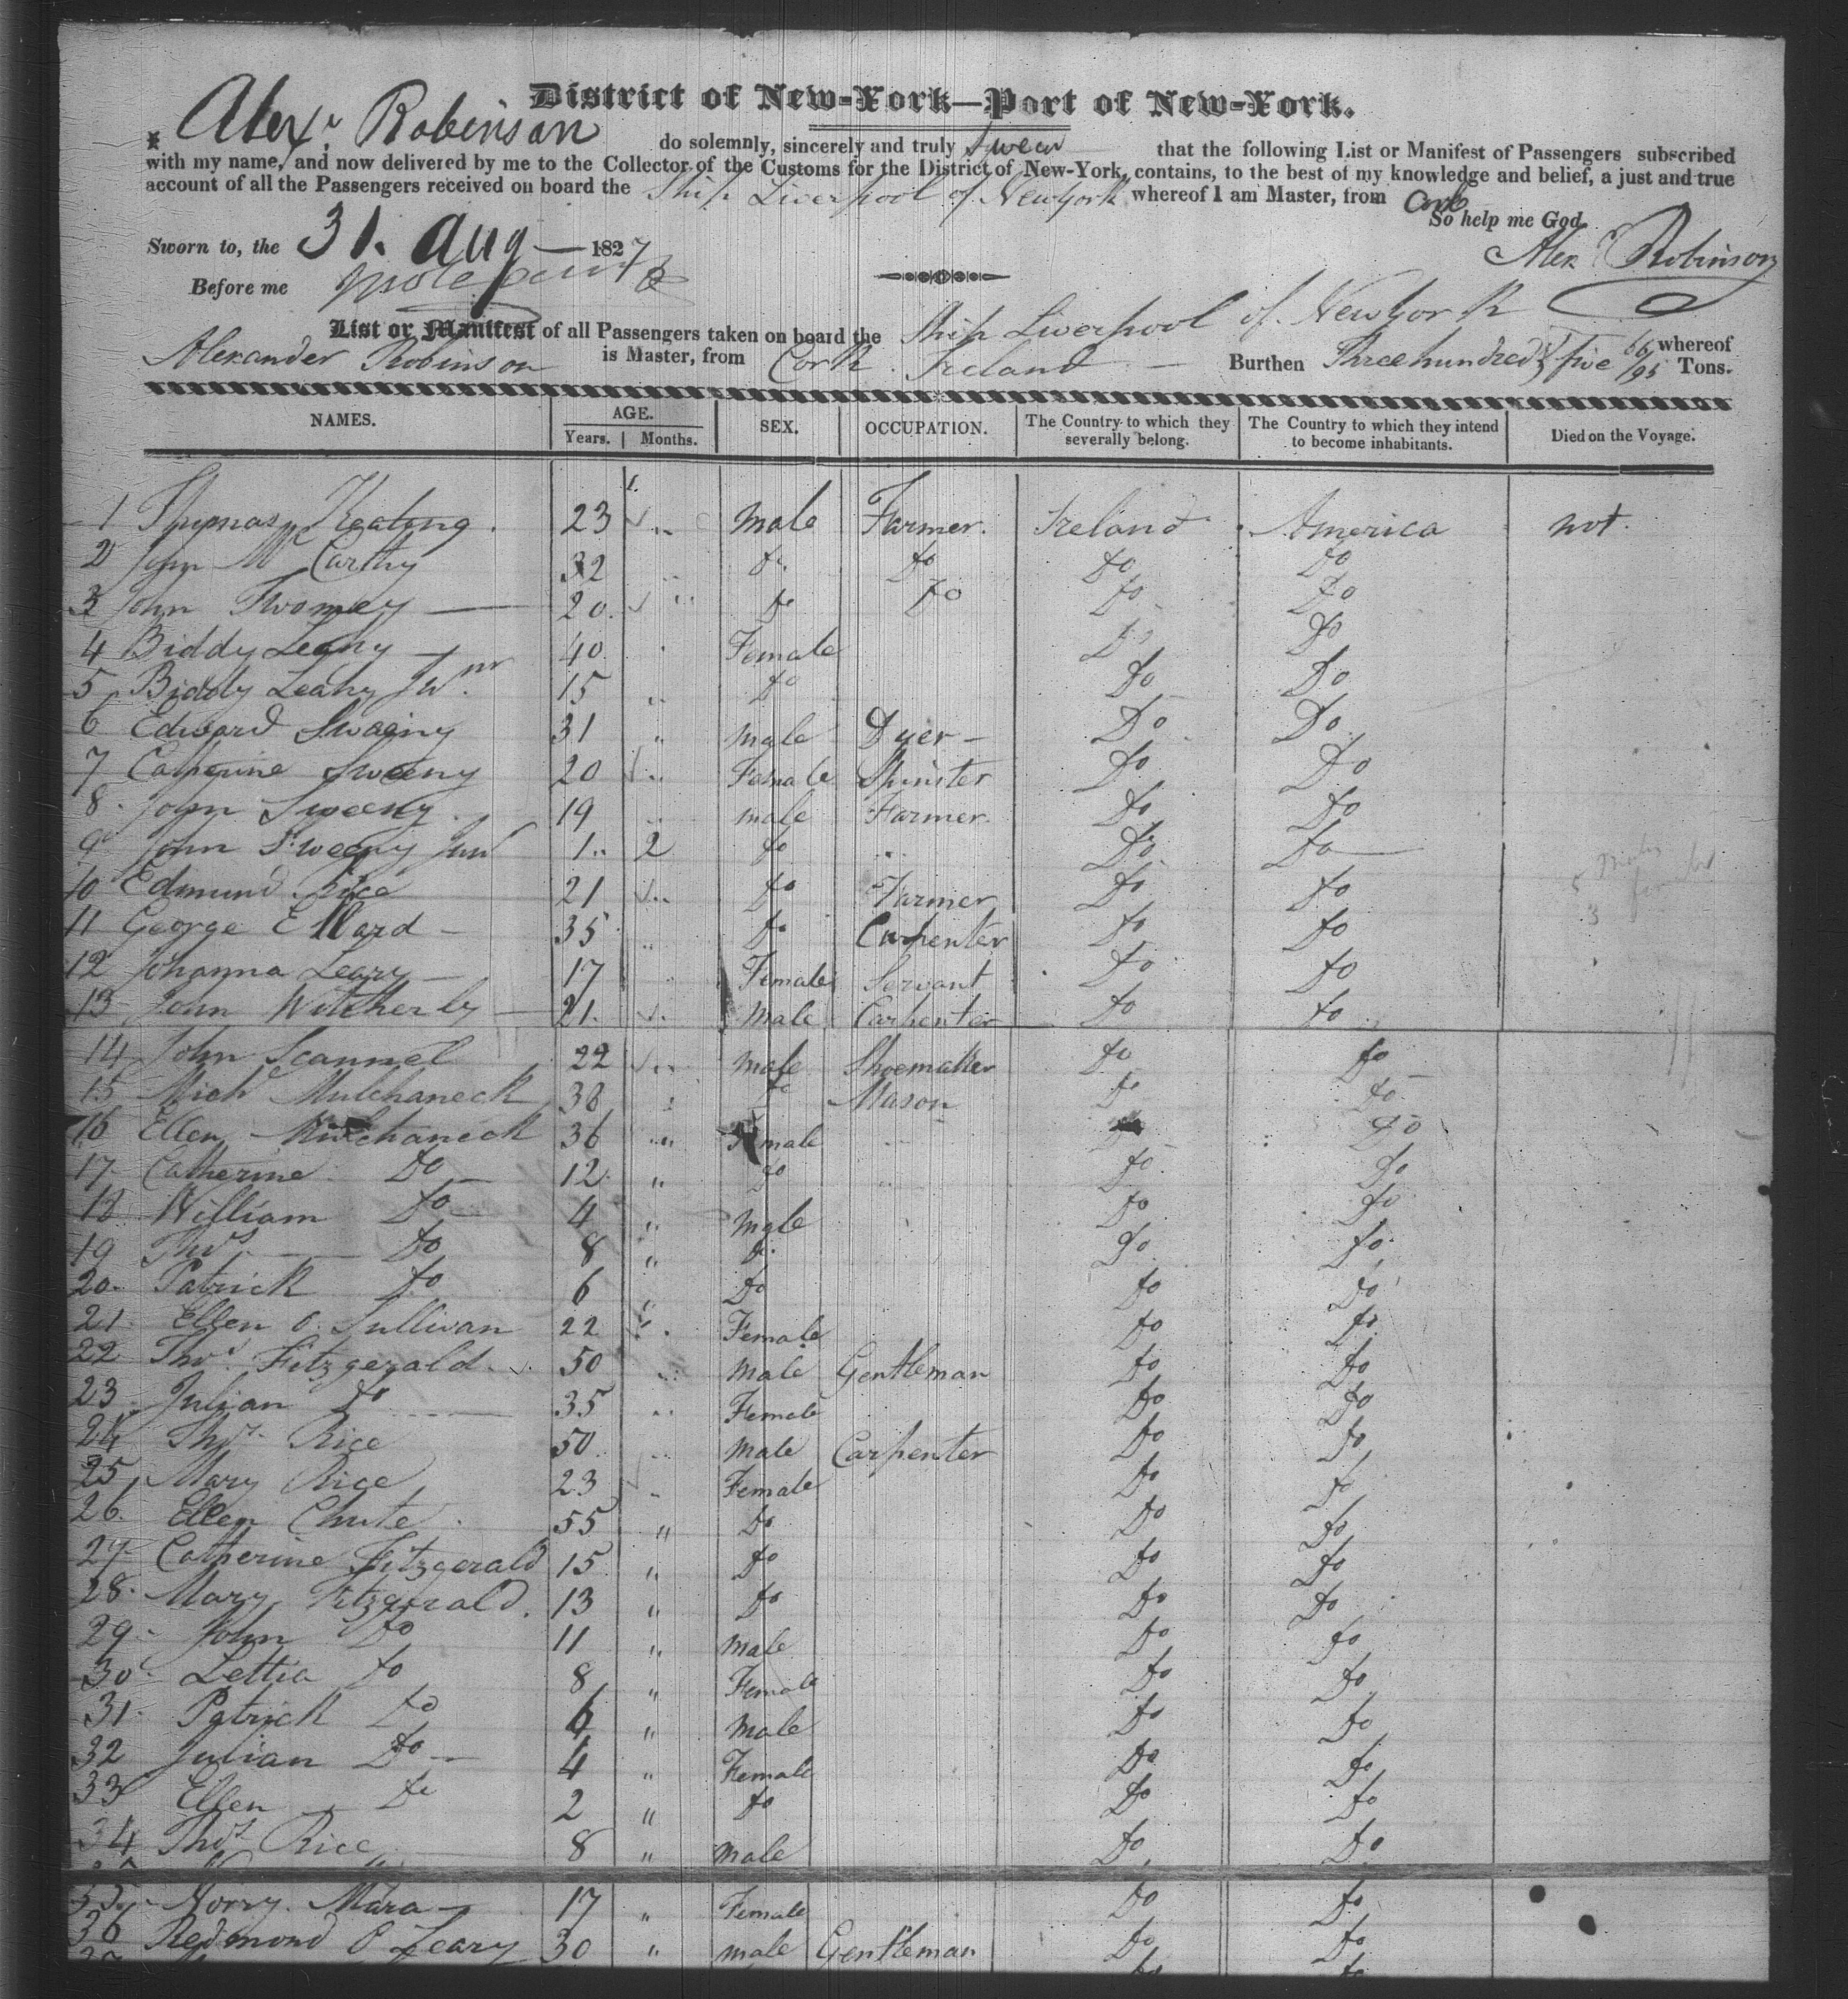 District of New-York—Port of New-York.
I, Alexr. Robinson do solemnly, sincerely and truly Swear that the following List or Manifest of Passengers subscribed
with my name, and now delivered by me to the Collector of the Customs for the District of New-York, contains, to the best of my knowledge and belief, a just and true
account of all the Passengers received on board the Ship Liverpool of New York whereof I am Master, from Cork
So help me God.
Sworn to, the 31. Aug — 1827
Alex Robinson
Before me
List or Manifest of all Passengers taken on board the Ship Liverpool of New York whereof
Alexander Robinson is Master, from Cork Ireland — Burthen Three hundred & five 66/95 Tons.
NAMES. AGE. SEX. OCCUPATION. The Country to which they severally belong. The Country to which they intend to become inhabitants. Died on the Voyage.
Years. Months.
1 Thomas Keating. 23 male Farmer. Ireland America not.
2 John Mc Carthy 32 do do do do
3 John Twomey 20 do do do do
4 Biddy Leahy 40 Female do do
5 Biddy Leahy Junr 15 do do do
6 Edward Sweeny 31 male Dyer do do
7 Catherine Sweeny 20 Female Spinster do do
8 John Sweeny 19 male Farmer do do
9 John Sweeny Junr 1 2 do do do
10 Edmund Rice 21 do Farmer do do
11 George Ellard 35 do Carpenter do do
12 Johanna Leary 17 Female Servant do do
13 John Witherby 21 male Carpenter do do
14 John Scannel 22 male Shoemaker do do
15 Michl Mulchaneck 38 do Mason do do
16 Ellen Mulchaneck 36 Female do do
17 Catherine Do 12 do do do
18 William Do 4 male do do
19 Thos Do 8 do do do
20 Patrick do 6 do do do
21 Ellen O. Sullivan 22 Female do do
22 Thos. Fitzgerald 50 male Gentleman do do
23 Julian do 35 Female do do
24 Thos. Rice 50 male Carpenter do do
25 Mary Rice 23 Female do do
26 Ellen Chute 55 do do do
27 Catherine Fitzgerald 15 do do do
28 Mary Fitzgerald 13 do do do
29 John Do 11 male do do
30 Lettia do 8 Female do do
31 Patrick Do 6 male do do
32 Julian Do 4 Female do do
33 Ellen Do 2 do do do
34 Thos Rice 8 male do do
35 Norry Mara 17 Female do do
36 Redmond O Leary 30 male Gentleman do do